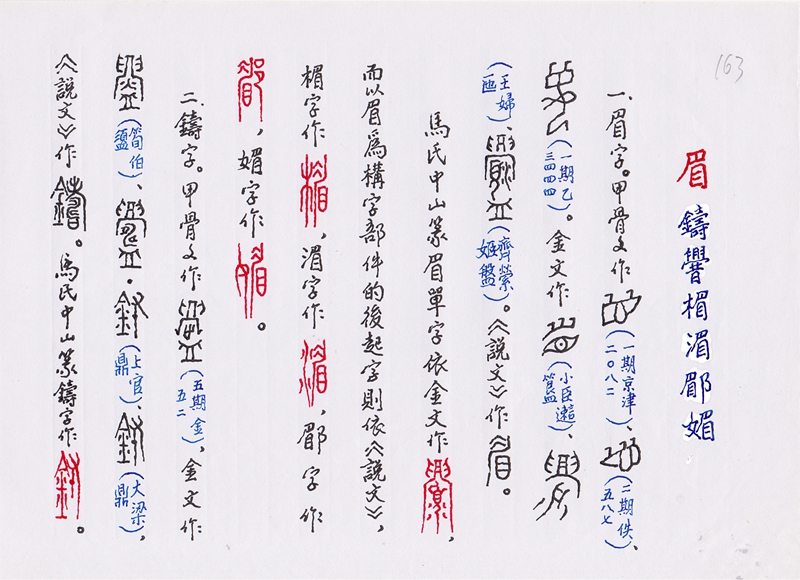 163
眉鑄釁楣湄郿媚
一、眉字。甲骨文作（一期京津二〇八二）、（二期佚五八七）、
（一期乙三四四四）。金文作（小臣簋）、
（王婦匜）、（齊縈姬盤）。《說文》作。
馬氏中山篆眉單字依金文作，
而以眉爲構字部件的後起字則依《說文》，
楣字作，湄字作，郿字作
，媚字作。
二、鑄字。甲骨文作（五期金），金文作
（筍伯盨）、．（上官鼎）、（大梁鼎），
《說文》作。馬氏中山篆鑄字作。